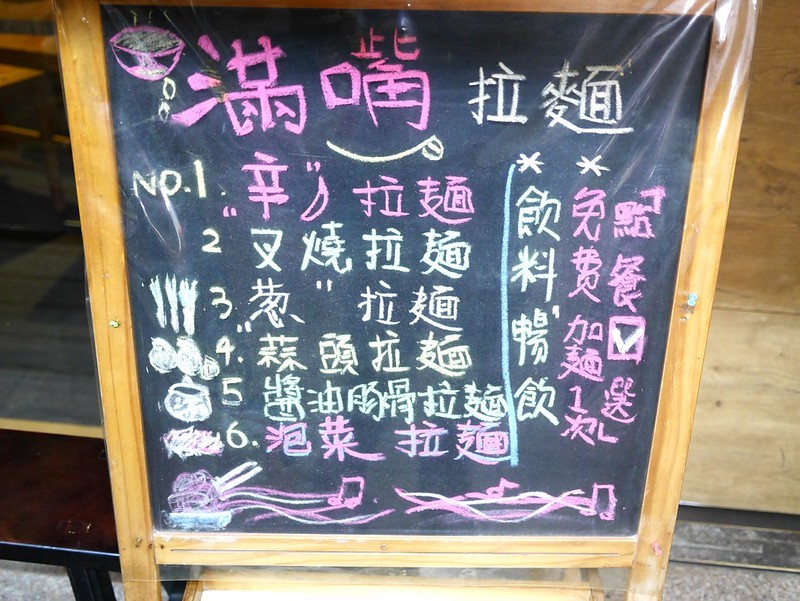 滿嘴 拉麵
NO.1 "辛" 拉麵
2 叉燒拉麵
3 "葱" 拉麵
4. 蒜頭拉麵
5 醬油豚骨拉麵
6. 泡菜 拉麵
*飲料暢飲
*免費加麵1次
「點餐☑選」